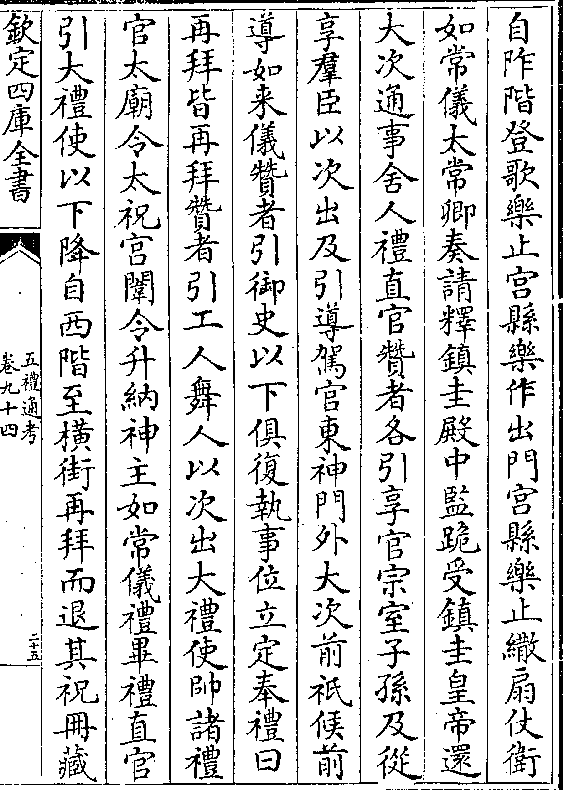 自阼階登歌樂止宮縣樂作出門宮縣樂止繖扇仗衛
如常儀太常卿奏請釋鎮圭殿中監跪受鎮圭皇帝還
大次通事舍人禮直官贊者各引享官宗室子孫及從
享羣臣以次出及引導駕官東神門外大次前祗候前
導如来儀贊者引御史以下俱復執事位立定奉禮曰
再拜皆再拜贊者引工人舞人以次出大禮使帥諸禮
官太廟令太祝宮闈令升納神主如常儀禮畢禮直官
引大禮使以下降自西階至橫街再拜而退其祝冊藏
欽定四庫全書
五禮通考
卷九十四
二十五